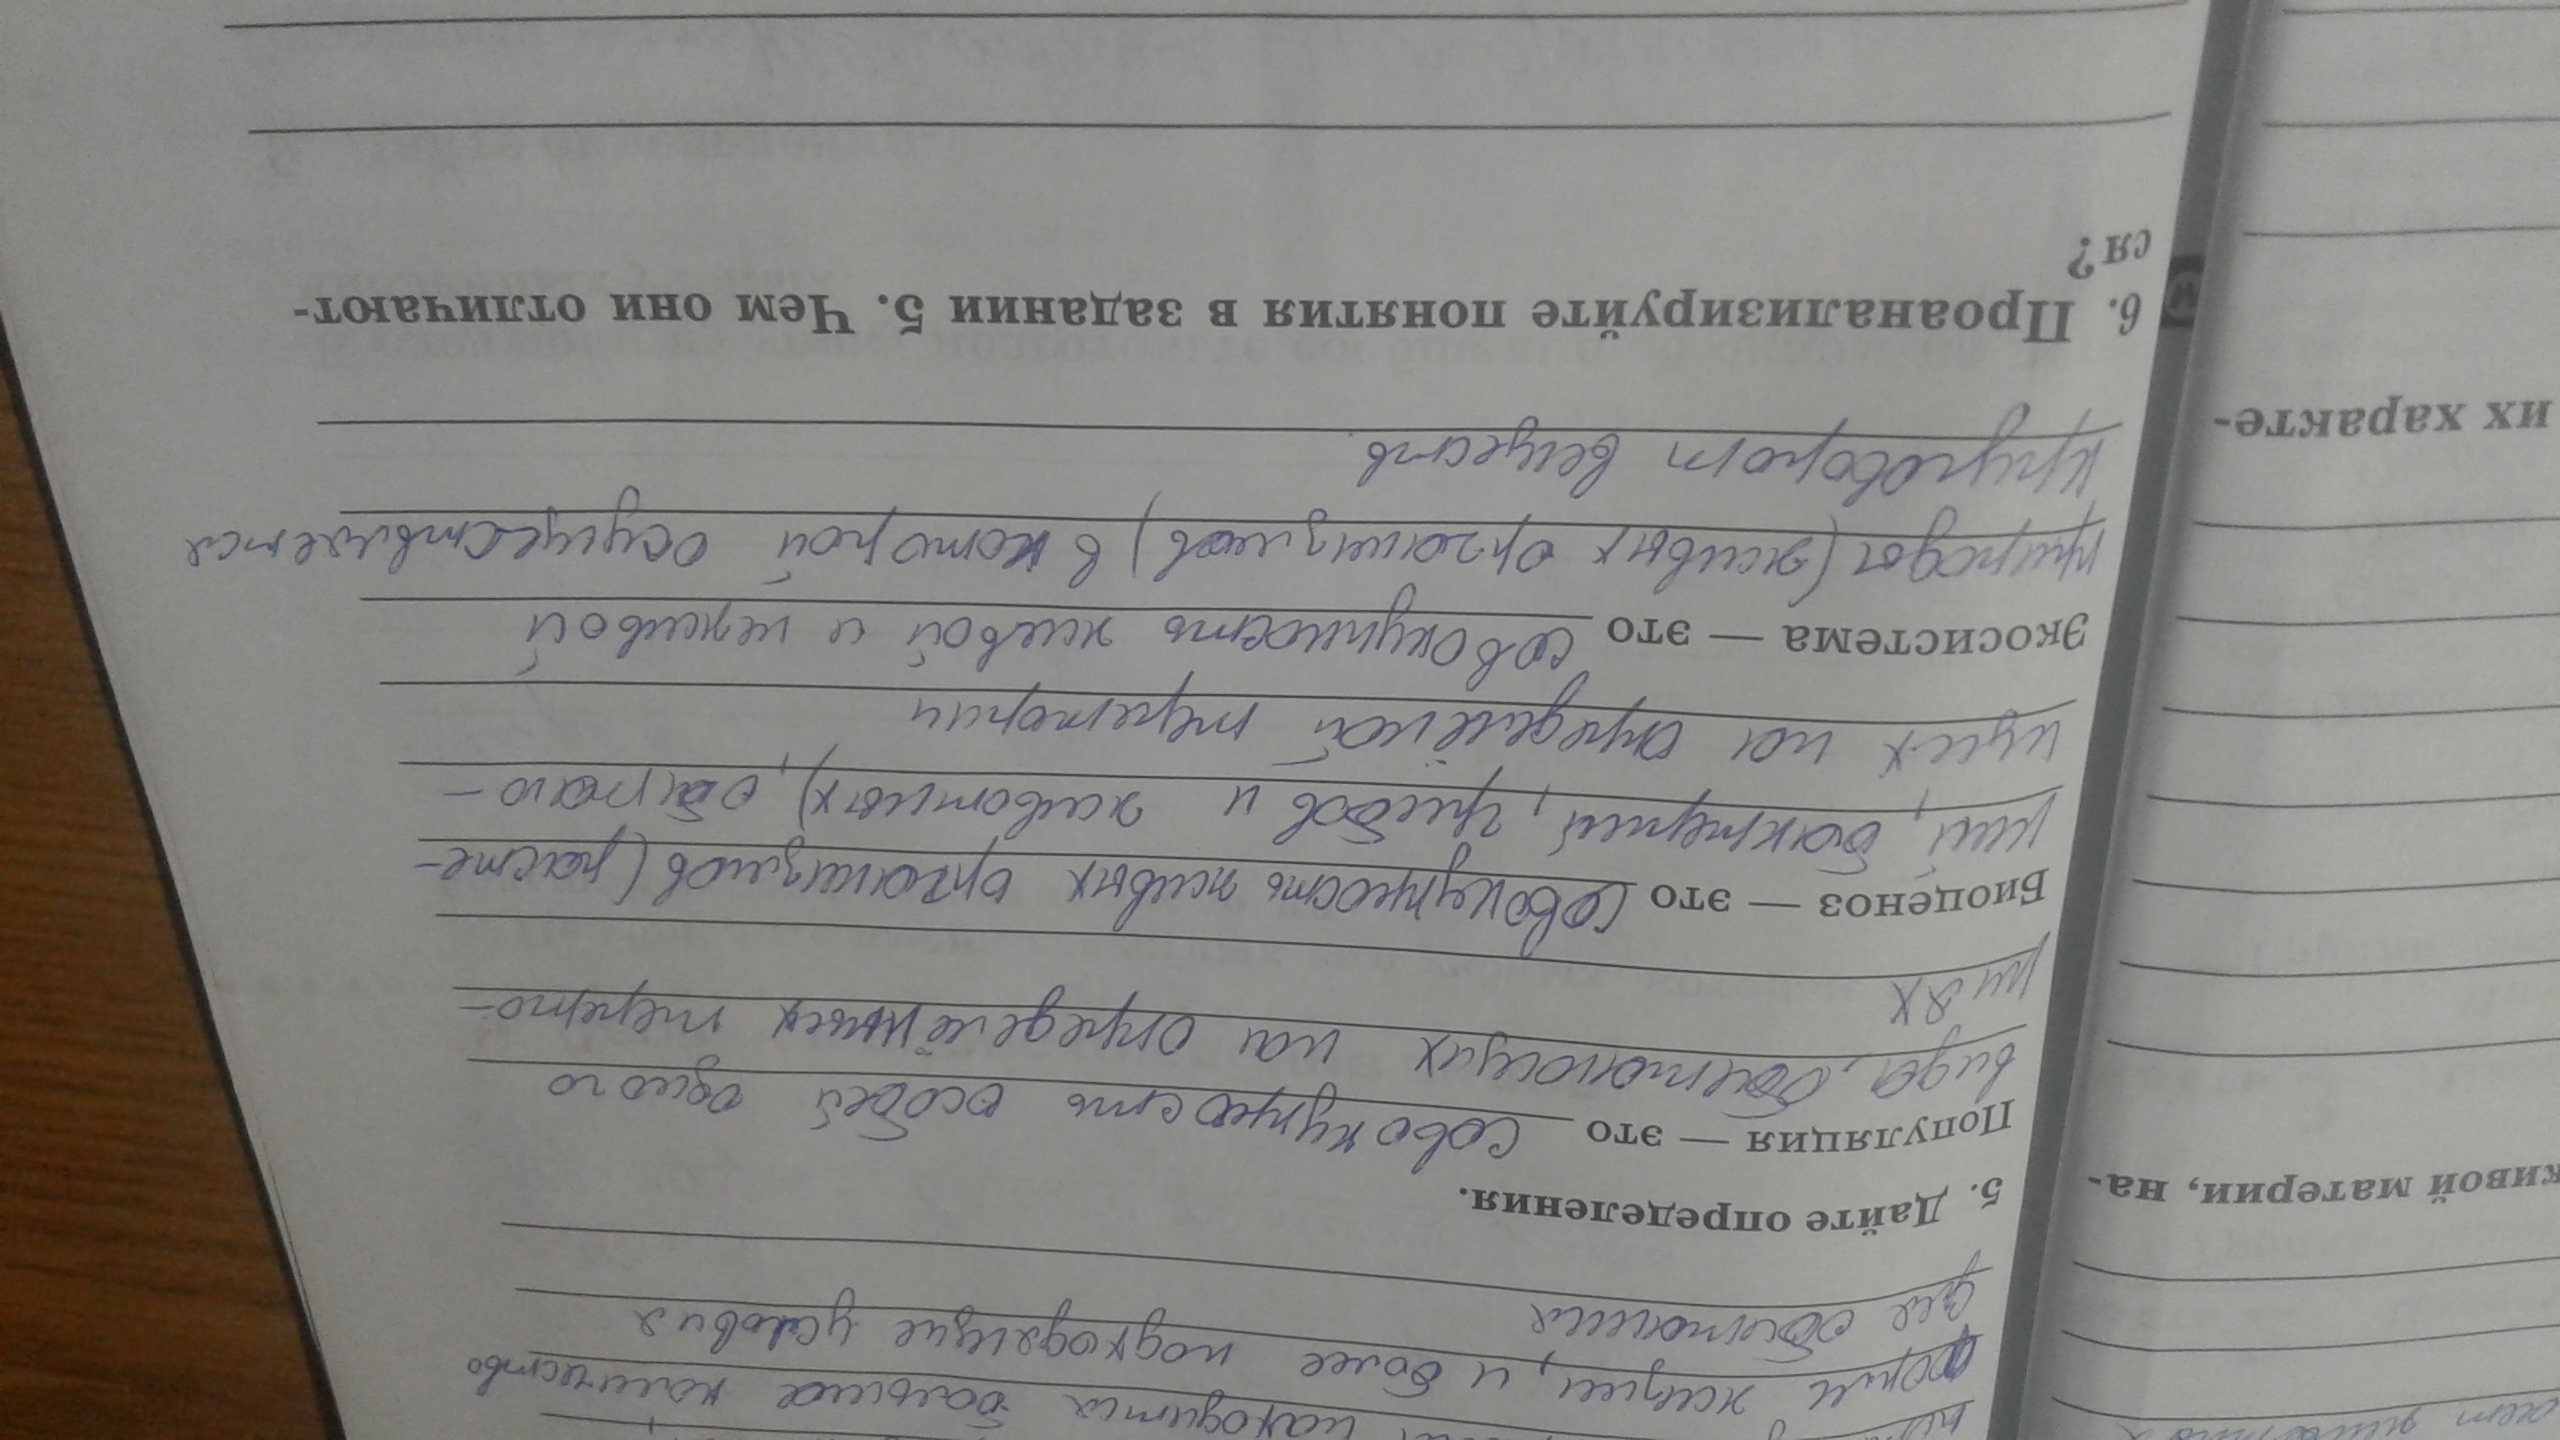 находится больше количество
форм жизни, и более подходящие условия
для обитания
5. Дайте определения.
Популяция — это совокупность особей одного
вида, обитающих на определённых терито-
риях
Биоценоз — это совокупность живых организмов (расте-
ний, бактерий, грибов и животных), обитаю-
щих на определёной територии
Экосистема — это совокупность живой и неживой
природы (живых организмов) в которой осуществляется
круговорот веществ.
6. Проанализируйте понятия в задании 5. Чем они отличают-
ся?
живой материи, на-
их характе-